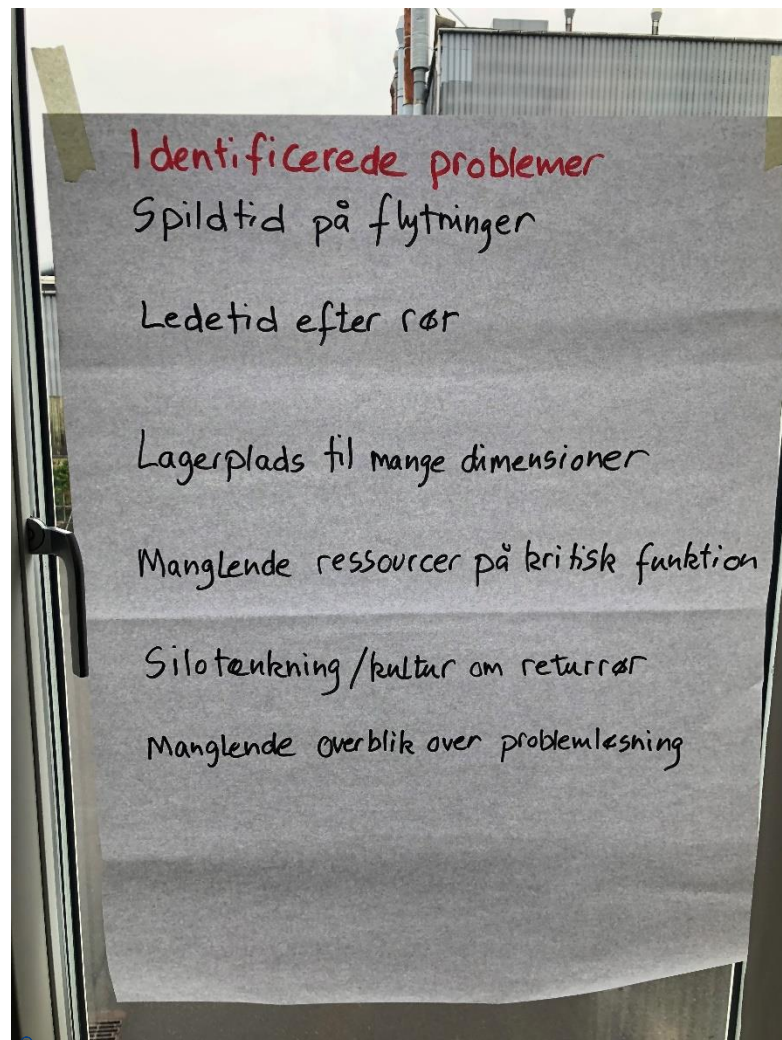 Identificerede problemer
Spildtid på flytninger
Ledetid efter rør
Lagerplads til mange dimensioner
Manglende ressourcer på kritisk funktion
Silotænkning/kultur om returrør
Manglende overblik over problemløsning